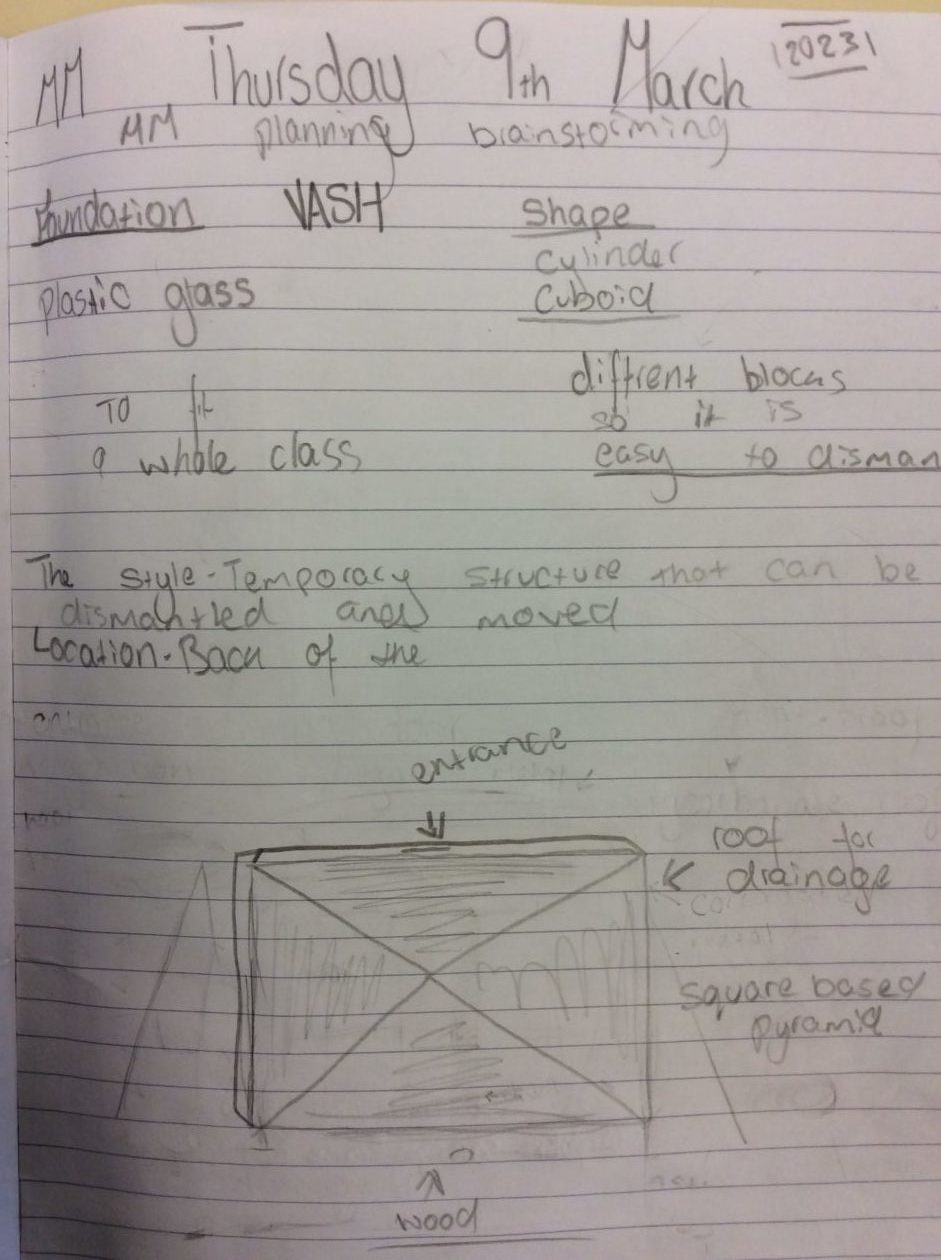 MM Thursday 9th March 2023
MM planning brainstorming
Foundation VASH Shape
cylinder
plastic glass cuboid
diffrent blocks
To fit so it is
a whole class easy to disman
The style-Temporary structure that can be
dismantled and moved
Location-Back of the
entrance
roof for
drainage
square based
pyramid
wood